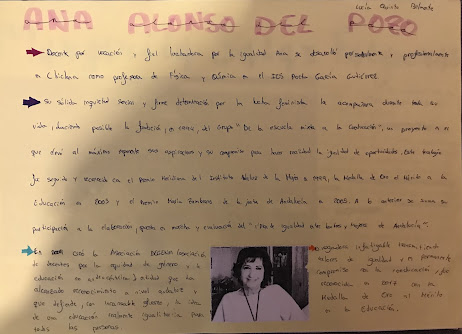 Lucía Quirós
ANA ALONSO DEL POZO
Docente por vocación y fiel luchadora por la igualdad Ana se desarrolló personalmente y profesionalmente
en Chiclana como profesora de Física y Química en el IES Poeta García Gutiérrez
Su sólida inquietud social y firme determinación por la lucha feminista la acompañaron durante toda su
vida, haciendo posible la fundación, en, del grupo "De la escuela mixta a la Coeducación", un proyecto en el
que elevó al máximo exponente sus aspiraciones y su compromiso para hacer realidad la igualdad de oportunidades. Este trabajo
fue seguido y reconocido en el Premio del Instituto de la Mujer en, la Medalla de Oro al Mérito en la
Educación en 2003 y el Premio de la Junta de Andalucía en 2005. A lo anterior se suma su
participación en la elaboración, puesta en marcha y evaluación del "I Plan de igualdad entre hombres y Mujeres de Andalucía".
En creó la Asociación (asociación
de docentes por la equidad de género en la
educación) entidad que ha
alcanzado reconocimiento a nivel andaluz y
que defiende, con la idea
de una educación realmente igualitaria para
todas las personas.
Su infatigable transmitiendo
valores de igualdad y su permanente
compromiso con la coeducación, fue
reconocida en 2017 con la
Medalla de Oro al Mérito
en la Educación.